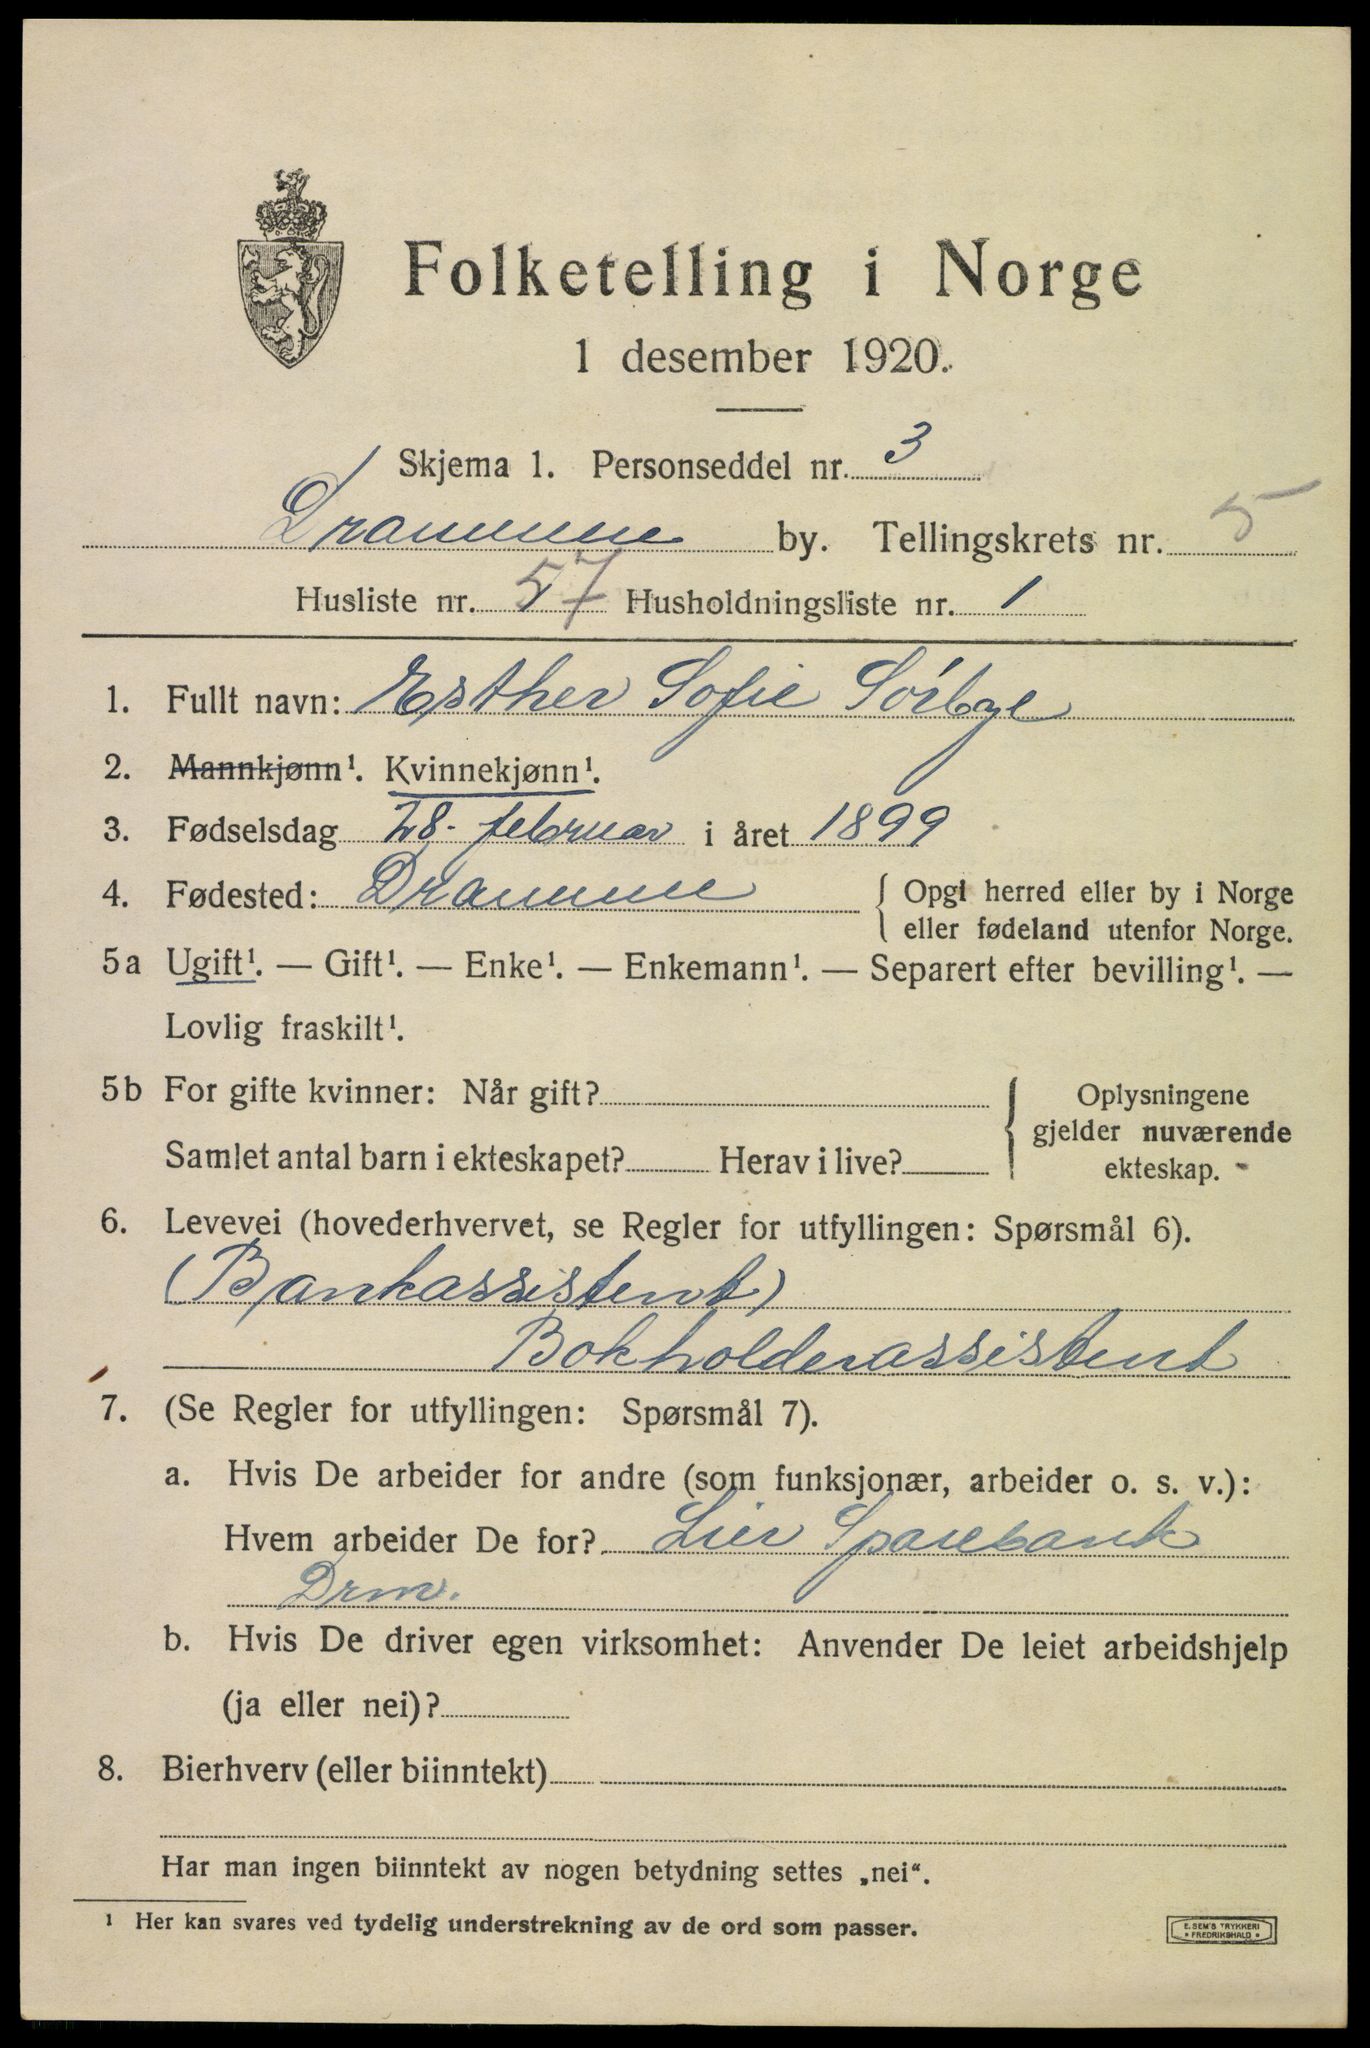 Folketelling i Norge
1 desember 1920.
Skjema 1. Personseddel nr. 3
Drammen by. Tellingskrets nr. 5
Husliste nr. 57 Husholdningsliste nr. 1
1. Fullt navn: Esther Sofie Sörbye
2. Mannkjønn¹. Kvinnekjønn¹.
3. Fødselsdag 28. februar i året 1899
4. Fødested: Drammen { Opgi herred eller by i Norge
eller fødeland utenfor Norge.
5a Ugift¹. — Gift¹. — Enke¹. — Enkemann¹. — Separert efter bevilling¹. —
Lovlig fraskilt¹.
5b For gifte kvinner: Når gift? { Oplysningene
gjelder nuværende
Samlet antal barn i ekteskapet? Herav i live? ekteskap.
6. Levevei (hovederhvervet, se Regler for utfyllingen: Spørsmål 6).
(Bankassistent)
Bokholderassistent
7. (Se Regler for utfyllingen: Spørsmål 7).
a. Hvis De arbeider for andre (som funksjonær, arbeider o. s. v.):
Hvem arbeider De for? Lier Sparebank
Drm.
b. Hvis De driver egen virksomhet: Anvender De leiet arbeidshjelp
(ja eller nei)?
8. Bierhverv (eller biinntekt)
Har man ingen biinntekt av nogen betydning settes „nei“.
¹ Her kan svares ved tydelig understrekning av de ord som passer.
E. SEM'S TRYKKERI
• FREDRIKSHALD •